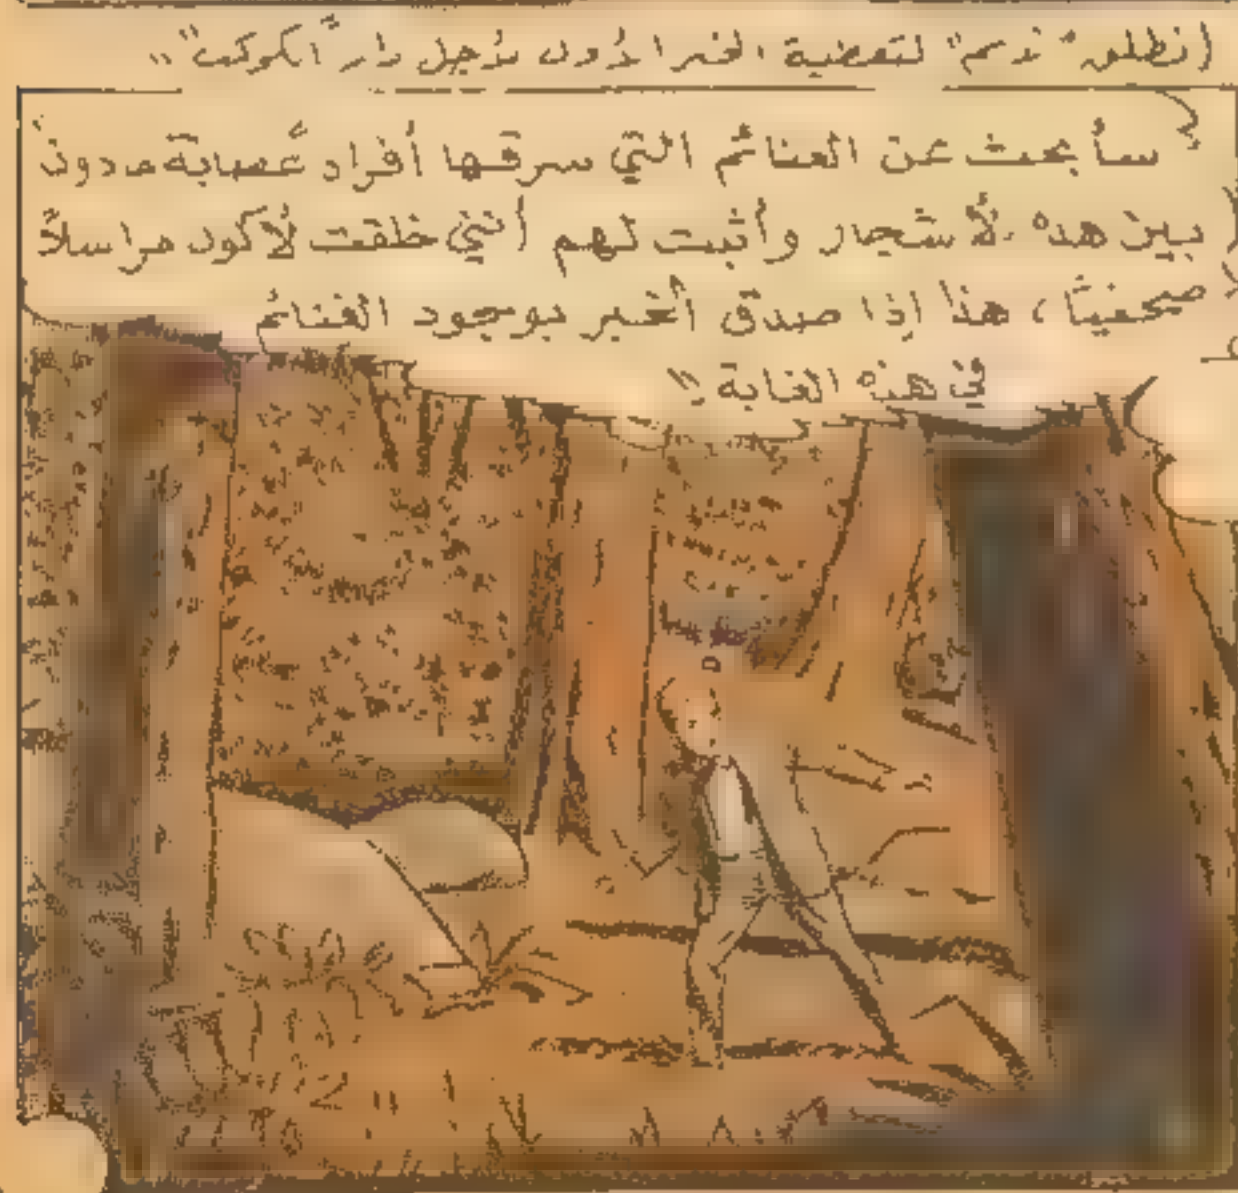 انطلق "نديم" لتغطية الخبر الأول لأجل دار "الكوكب"..
سأبحث عن الغنائم التي سرقها أفراد عصابة
بين هذه الأشجار وأثبت لهم أنني خلقت لأكون مراسلاً
صحفياً، هذا إذا صدق الخبر بوجود الغنائم
في هذه الغابة "